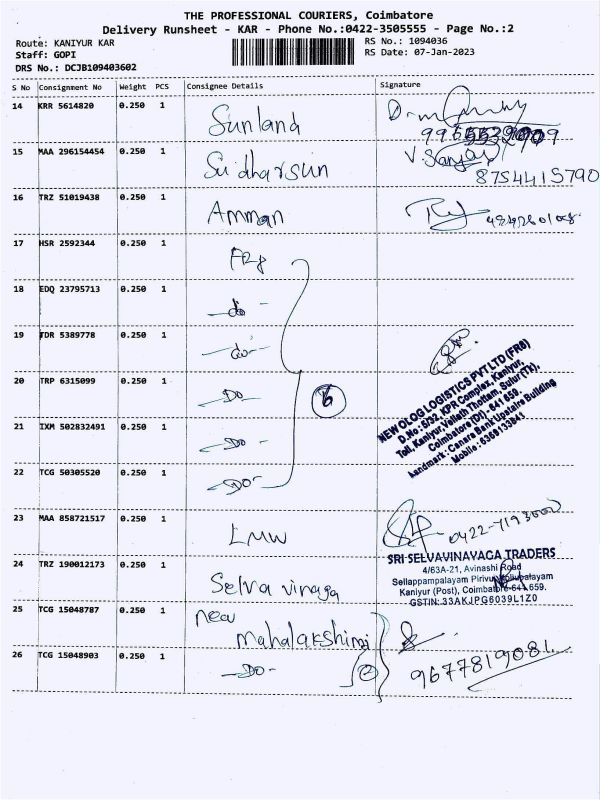 THE PROFESSIONAL COURIERS, Coimbatore
Delivery Runsheet - KAR - Phone No.:0422-3505555 - Page No.:2
Route: KANIYUR KAR
Staff: GOPI
DRS No.: DCJB109403602
RS No.: 1094036
RS Date: 07-Jan-2023
S No Consignment No Weight PCS Consignee Details Signature
14 KRR 5614820 0.250 1 Sunland
15 MAA 296154454 0.250 1 Sudharsun V. Sanjay
8754415790
16 TRZ 51019438 0.250 1 Amman
17 HSR 2592344 0.250 1
18 EDQ 23795713 0.250 1 -do-
19 TDR 5389778 0.250 1 -do-
20 TRP 6315099 0.250 1 -Do-
6
21 IXM 502832491 0.250 1 -Do-
22 TCG 50305520 0.250 1 -Do-
NEW OLOG LOGISTICS PVT LTD (FR8)
D.No: 5/32, KPR Complex, Kaniyur,
Toll, Kaniyur, Vellath Thottam, Sulur (Tk),
Coimbatore (Dt) - 641 659.
Landmark: Canara Bank Upstairs Building
Mobile: 6369133641
23 MAA 858721517 0.250 1 LMW
24 TRZ 190012173 0.250 1 Selva vinaga
SRI SELVAVINAYAGA TRADERS
4/63A-21, Avinashi Road
Sellappampalayam Pirivu,
Kaniyur (Post), Coimbatore-641 659.
GSTIN: 33AKJPG6039L1Z0
25 TCG 15048787 0.250 1 new
mahalakshimi
26 TCG 15048903 0.250 1 -Do- 2 9677819081